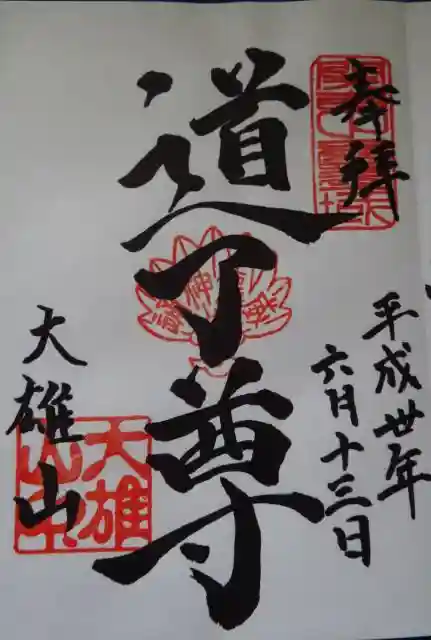 奉拝
平成卅年
六月十三日
道了尊
大雄山